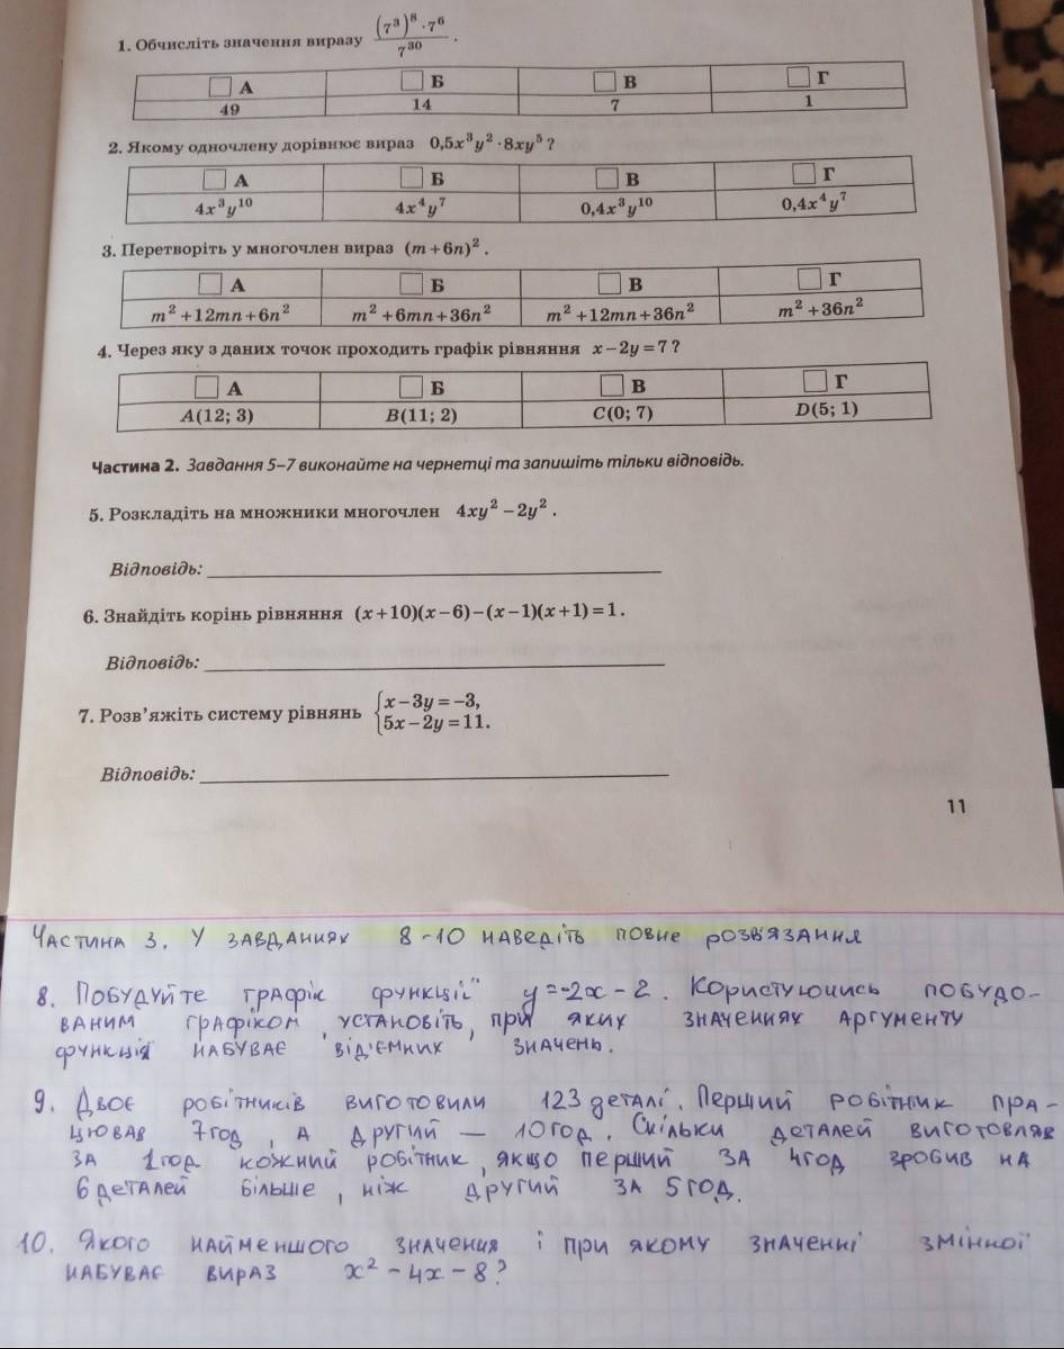 1. Обчисліть значення виразу (7³)⁸ · 7⁶ / 7³⁰ .
А Б В Г
49 14 7 1
2. Якому одночлену дорівнює вираз 0,5x³y² · 8xy⁵ ?
А Б В Г
4x³y¹⁰ 4x⁴y⁷ 0,4x³y¹⁰ 0,4x⁴y⁷
3. Перетворіть у многочлен вираз (m + 6n)² .
А Б В Г
m² + 12mn + 6n² m² + 6mn + 36n² m² + 12mn + 36n² m² + 36n²
4. Через яку з даних точок проходить графік рівняння x − 2y = 7 ?
А Б В Г
A(12; 3) B(11; 2) C(0; 7) D(5; 1)
Частина 2. Завдання 5–7 виконайте на чернетці та запишіть тільки відповідь.
5. Розкладіть на множники многочлен 4xy² − 2y² .
Відповідь:
6. Знайдіть корінь рівняння (x + 10)(x − 6) − (x − 1)(x + 1) = 1 .
Відповідь:
7. Розв’яжіть систему рівнянь { x − 3y = −3,
5x − 2y = 11.
Відповідь:
11
Частина 3. У завданнях 8-10 наведіть повне розв'язання
8. Побудуйте графік функції y = -2x - 2. Користуючись побудо-
ваним графіком, установіть, при яких значеннях аргументу
функція набуває від'ємних значень.
9. Двоє робітників виготовили 123 деталі. Перший робітник пра-
цював 7 год, а другий — 10 год. Скільки деталей виготовляв
за 1 год кожний робітник, якщо перший за 4 год зробив на
6 деталей більше, ніж другий за 5 год.
10. Якого найменшого значення і при якому значенні змінної
набуває вираз x² - 4x - 8?